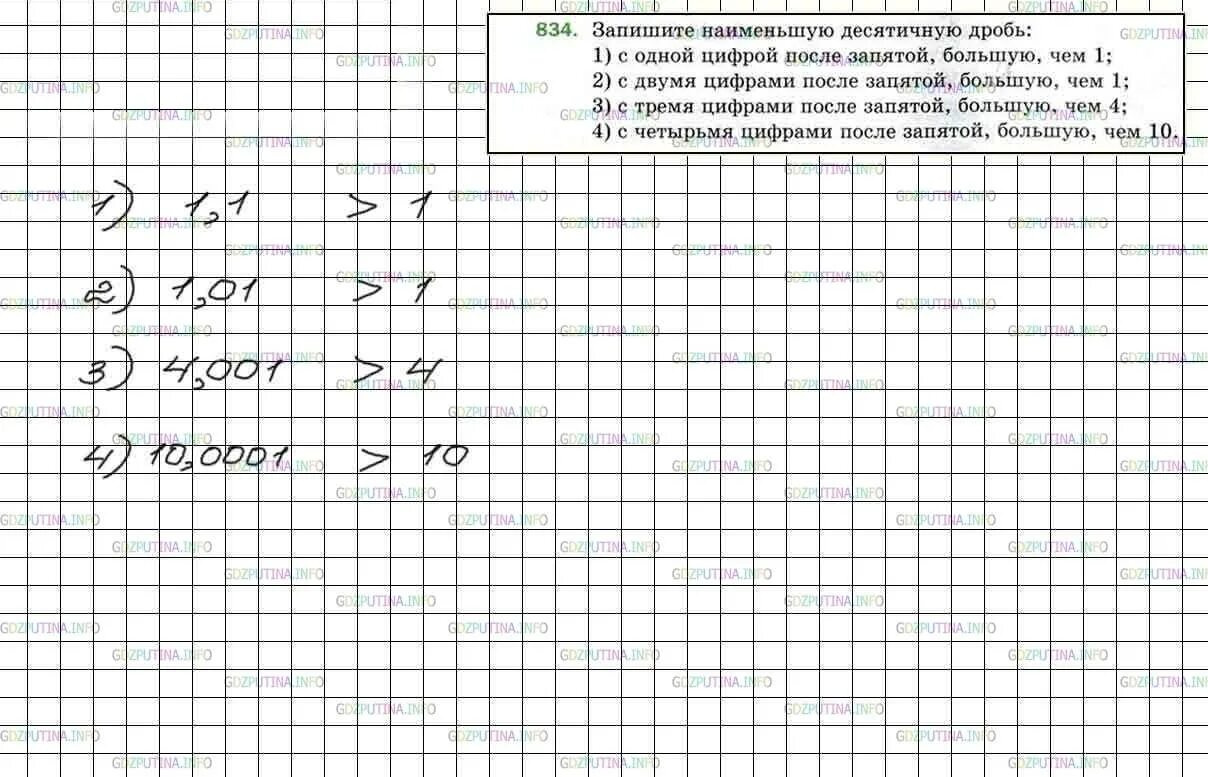 834. Запишите наименьшую десятичную дробь:
1) с одной цифрой после запятой, большую, чем 1;
2) с двумя цифрами после запятой, большую, чем 1;
3) с тремя цифрами после запятой, большую, чем 4;
4) с четырьмя цифрами после запятой, большую, чем 10.
1) 1,1 > 1
2) 1,01 > 1
3) 4,001 > 4
4) 10,0001 > 10
GDZPUTINA.INFO